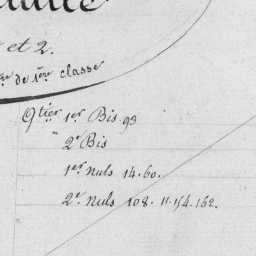 et 2.
de 1ère classe
Qtier 1er Bis. 93
" 2e Bis
1er nuls 14. 60.
2e nuls 108. 11. 154. 162.